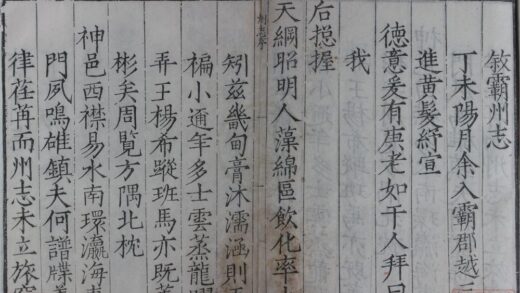 敘霸州志
丁未陽月余入霸郡越三
進黃髮紓宣
德意爰有庚老如干人拜曰
我
后揔握
天綱昭明人藻綿區飲化率土
矧兹畿甸膏沐濡涵則
褊小通年多士雲蒸龍
弄王楊希蹤班馬亦既
彬矣周覽方隅北枕
神邑西襟易水南環瀛海
門夙鳴雄鎮夫何譜牒
律荏苒而州志未立旅